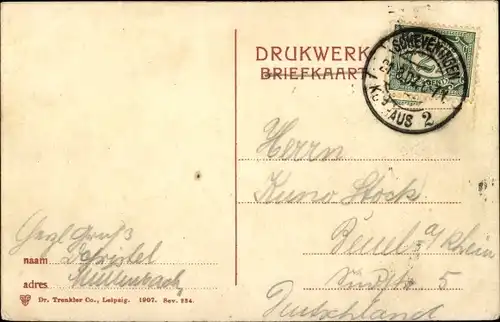 DRUKWERK
BRIEFKAART
SCHEVENINGEN
KURHAUS 2
Herrn
Kuno Stock
Beuel a/Rhein
5
Deutschland
Herzl Gruß
naam
adres
Dr. Trenkler Co., Leipzig. 1907. Sev. 254.